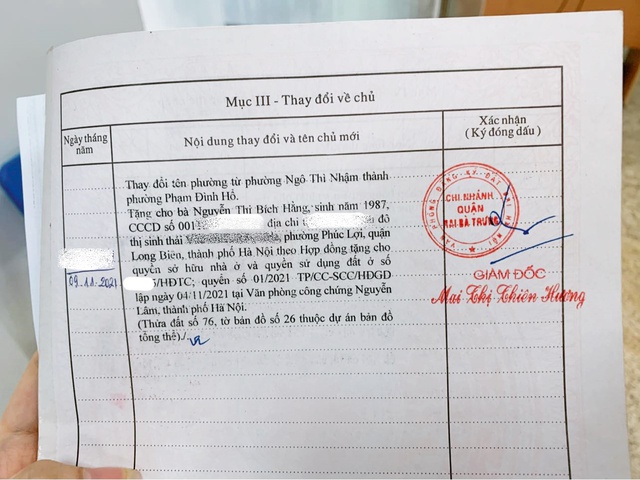 Mục III - Thay đổi về chủ
Ngày tháng
năm
Nội dung thay đổi và tên chủ mới
Xác nhận
(Ký đóng dấu)
Thay đổi tên phường từ phường Ngô Thì Nhậm thành
phường Phạm Đình Hổ.
Tặng cho bà Nguyễn Thị Bích Hằng, sinh năm 1987,
CCCD số 001 địa chỉ t đô
thị sinh thái , phường Phúc Lợi, quận
Long Biên, thành phố Hà Nội theo Hợp đồng tặng cho
quyền sở hữu nhà ở và quyền sử dụng đất ở số
/HĐTC; quyển số 01/2021 TP/CC-SCC/HĐGD
lập ngày 04/11/2021 tại Văn phòng công chứng Nguyễn
Lâm, thành phố Hà Nội.
(Thửa đất số 76, tờ bản đồ số 26 thuộc dự án bản đồ
tổng thể)./.
09.11.2021
VĂN PHÒNG ĐĂNG KÝ ĐẤT ĐAI HÀ NỘI
CHI NHÁNH
QUẬN
HAI BÀ TRƯNG
GIÁM ĐỐC
Mai Thị Thiên Hương